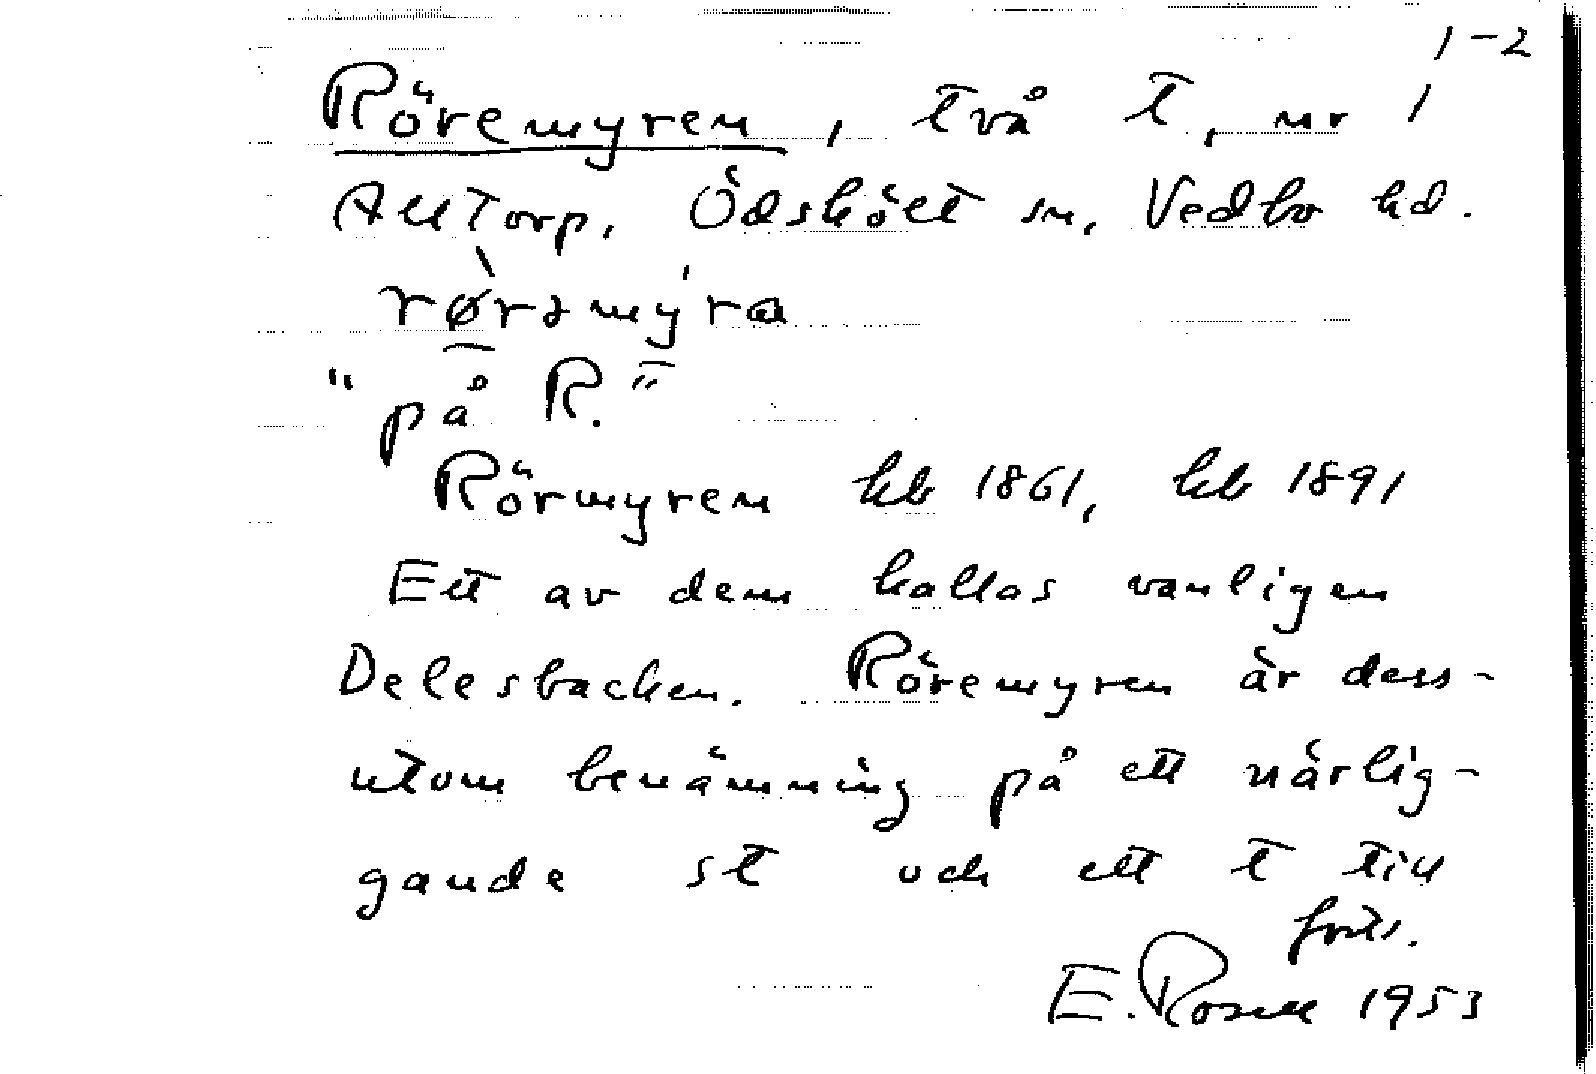 1-2
Röremyren, två t, nr 1
Alltorp. Ödskölt sn, Vedbo hd.
rø̀rəmy̍ra
"på R."
Rörmyren hb 1861, hb 1891
Ett av dem kallas vanligen
Delesbacken. Röremyren är dess-
utom benämning på ett närlig-
gande st och ett t till
forts.
E. Rosell 1953